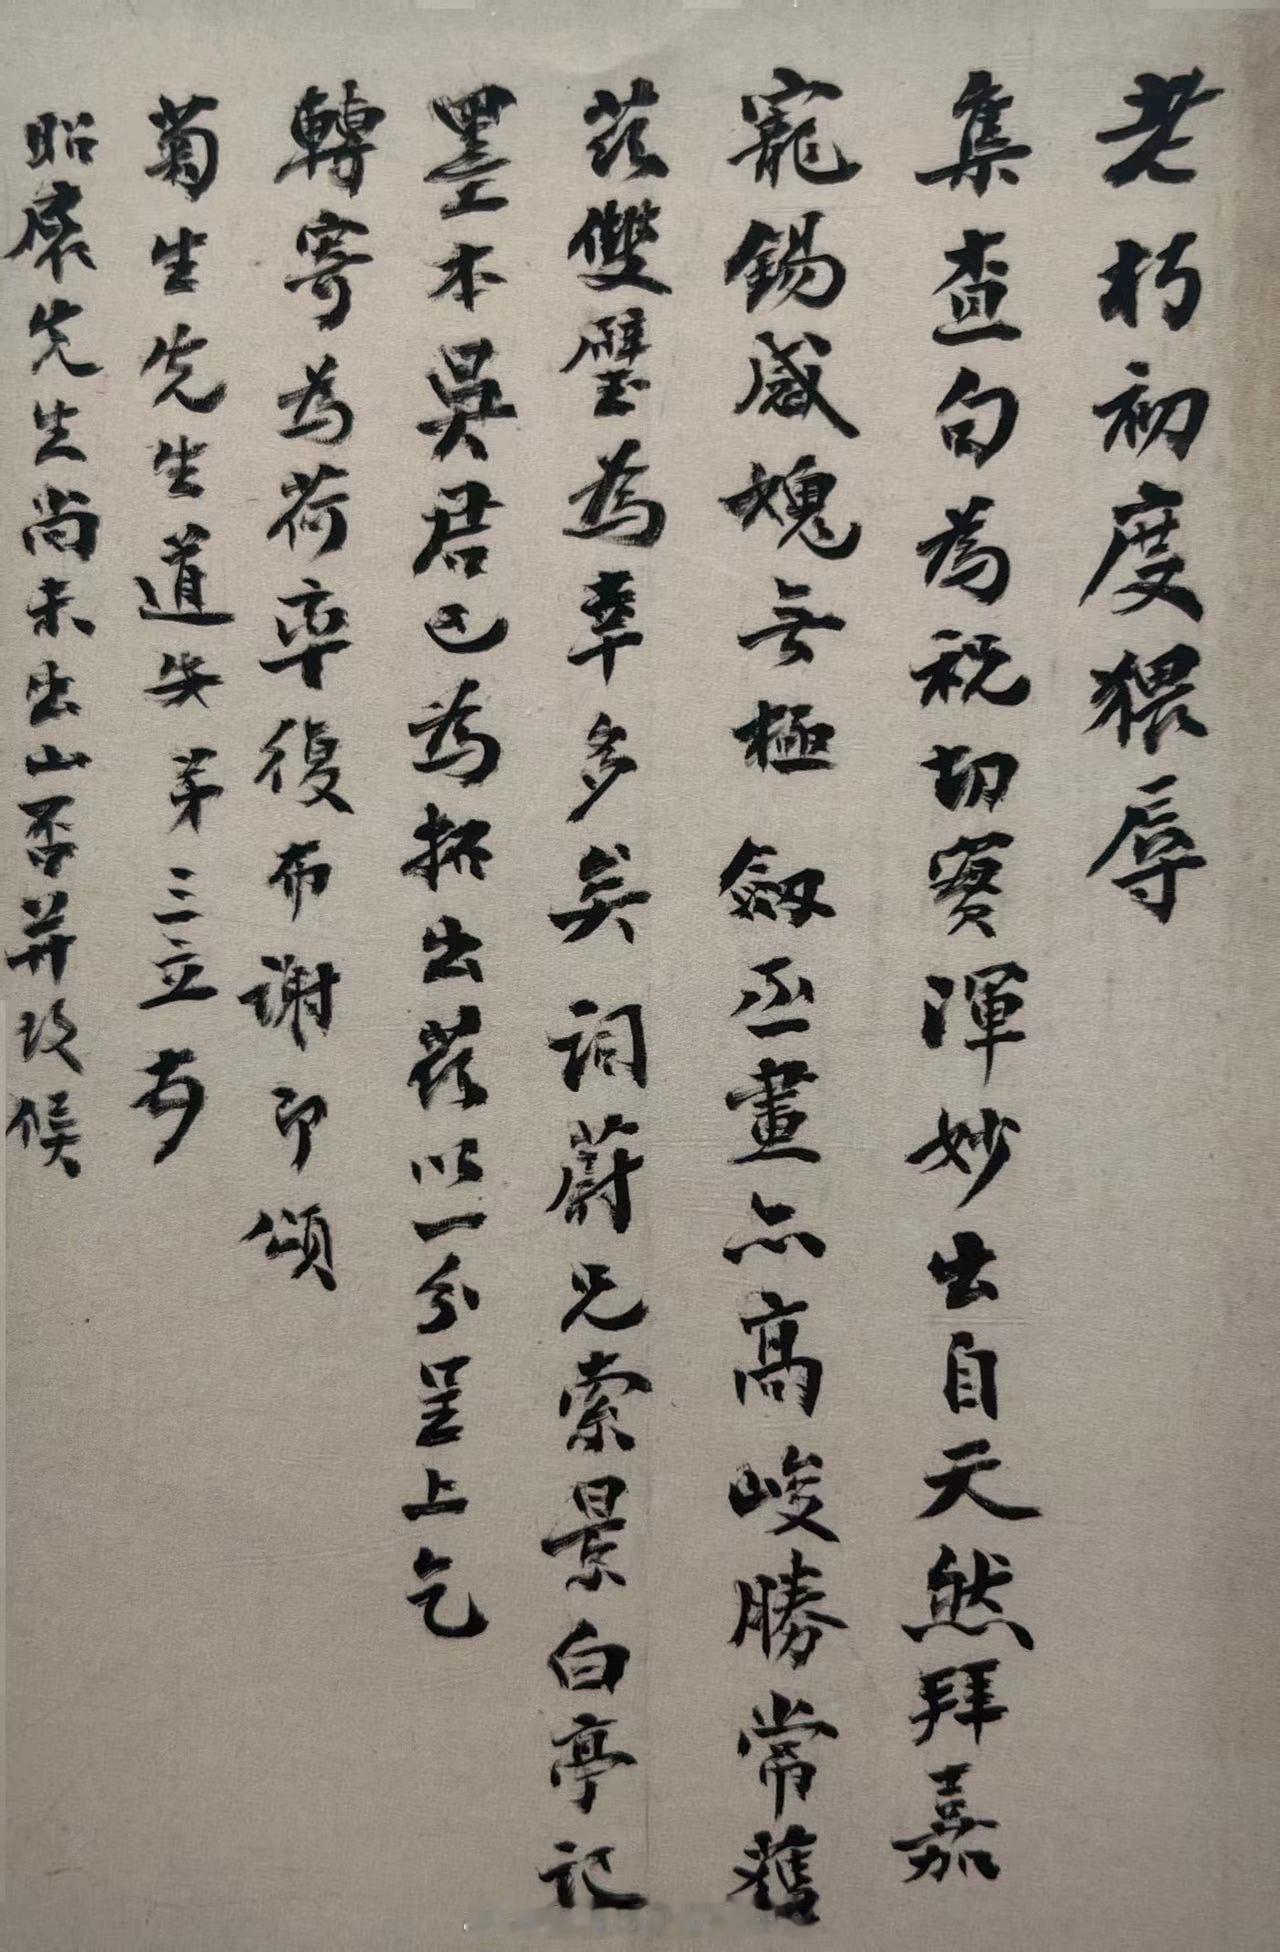 老朽初度猥辱
集盍句為祝切實渾妙出自天然拜嘉
寵錫感媿無極劔丞畫亦高峻勝常獲
茲雙璧為幸多矣詞蔚兄索景白亭記
墨本吳君已為拓出茲以一分呈上乞
轉寄為荷率復布謝即頌
菊生先生道安弟三立頓
昭扆先生尚未出山否並致候